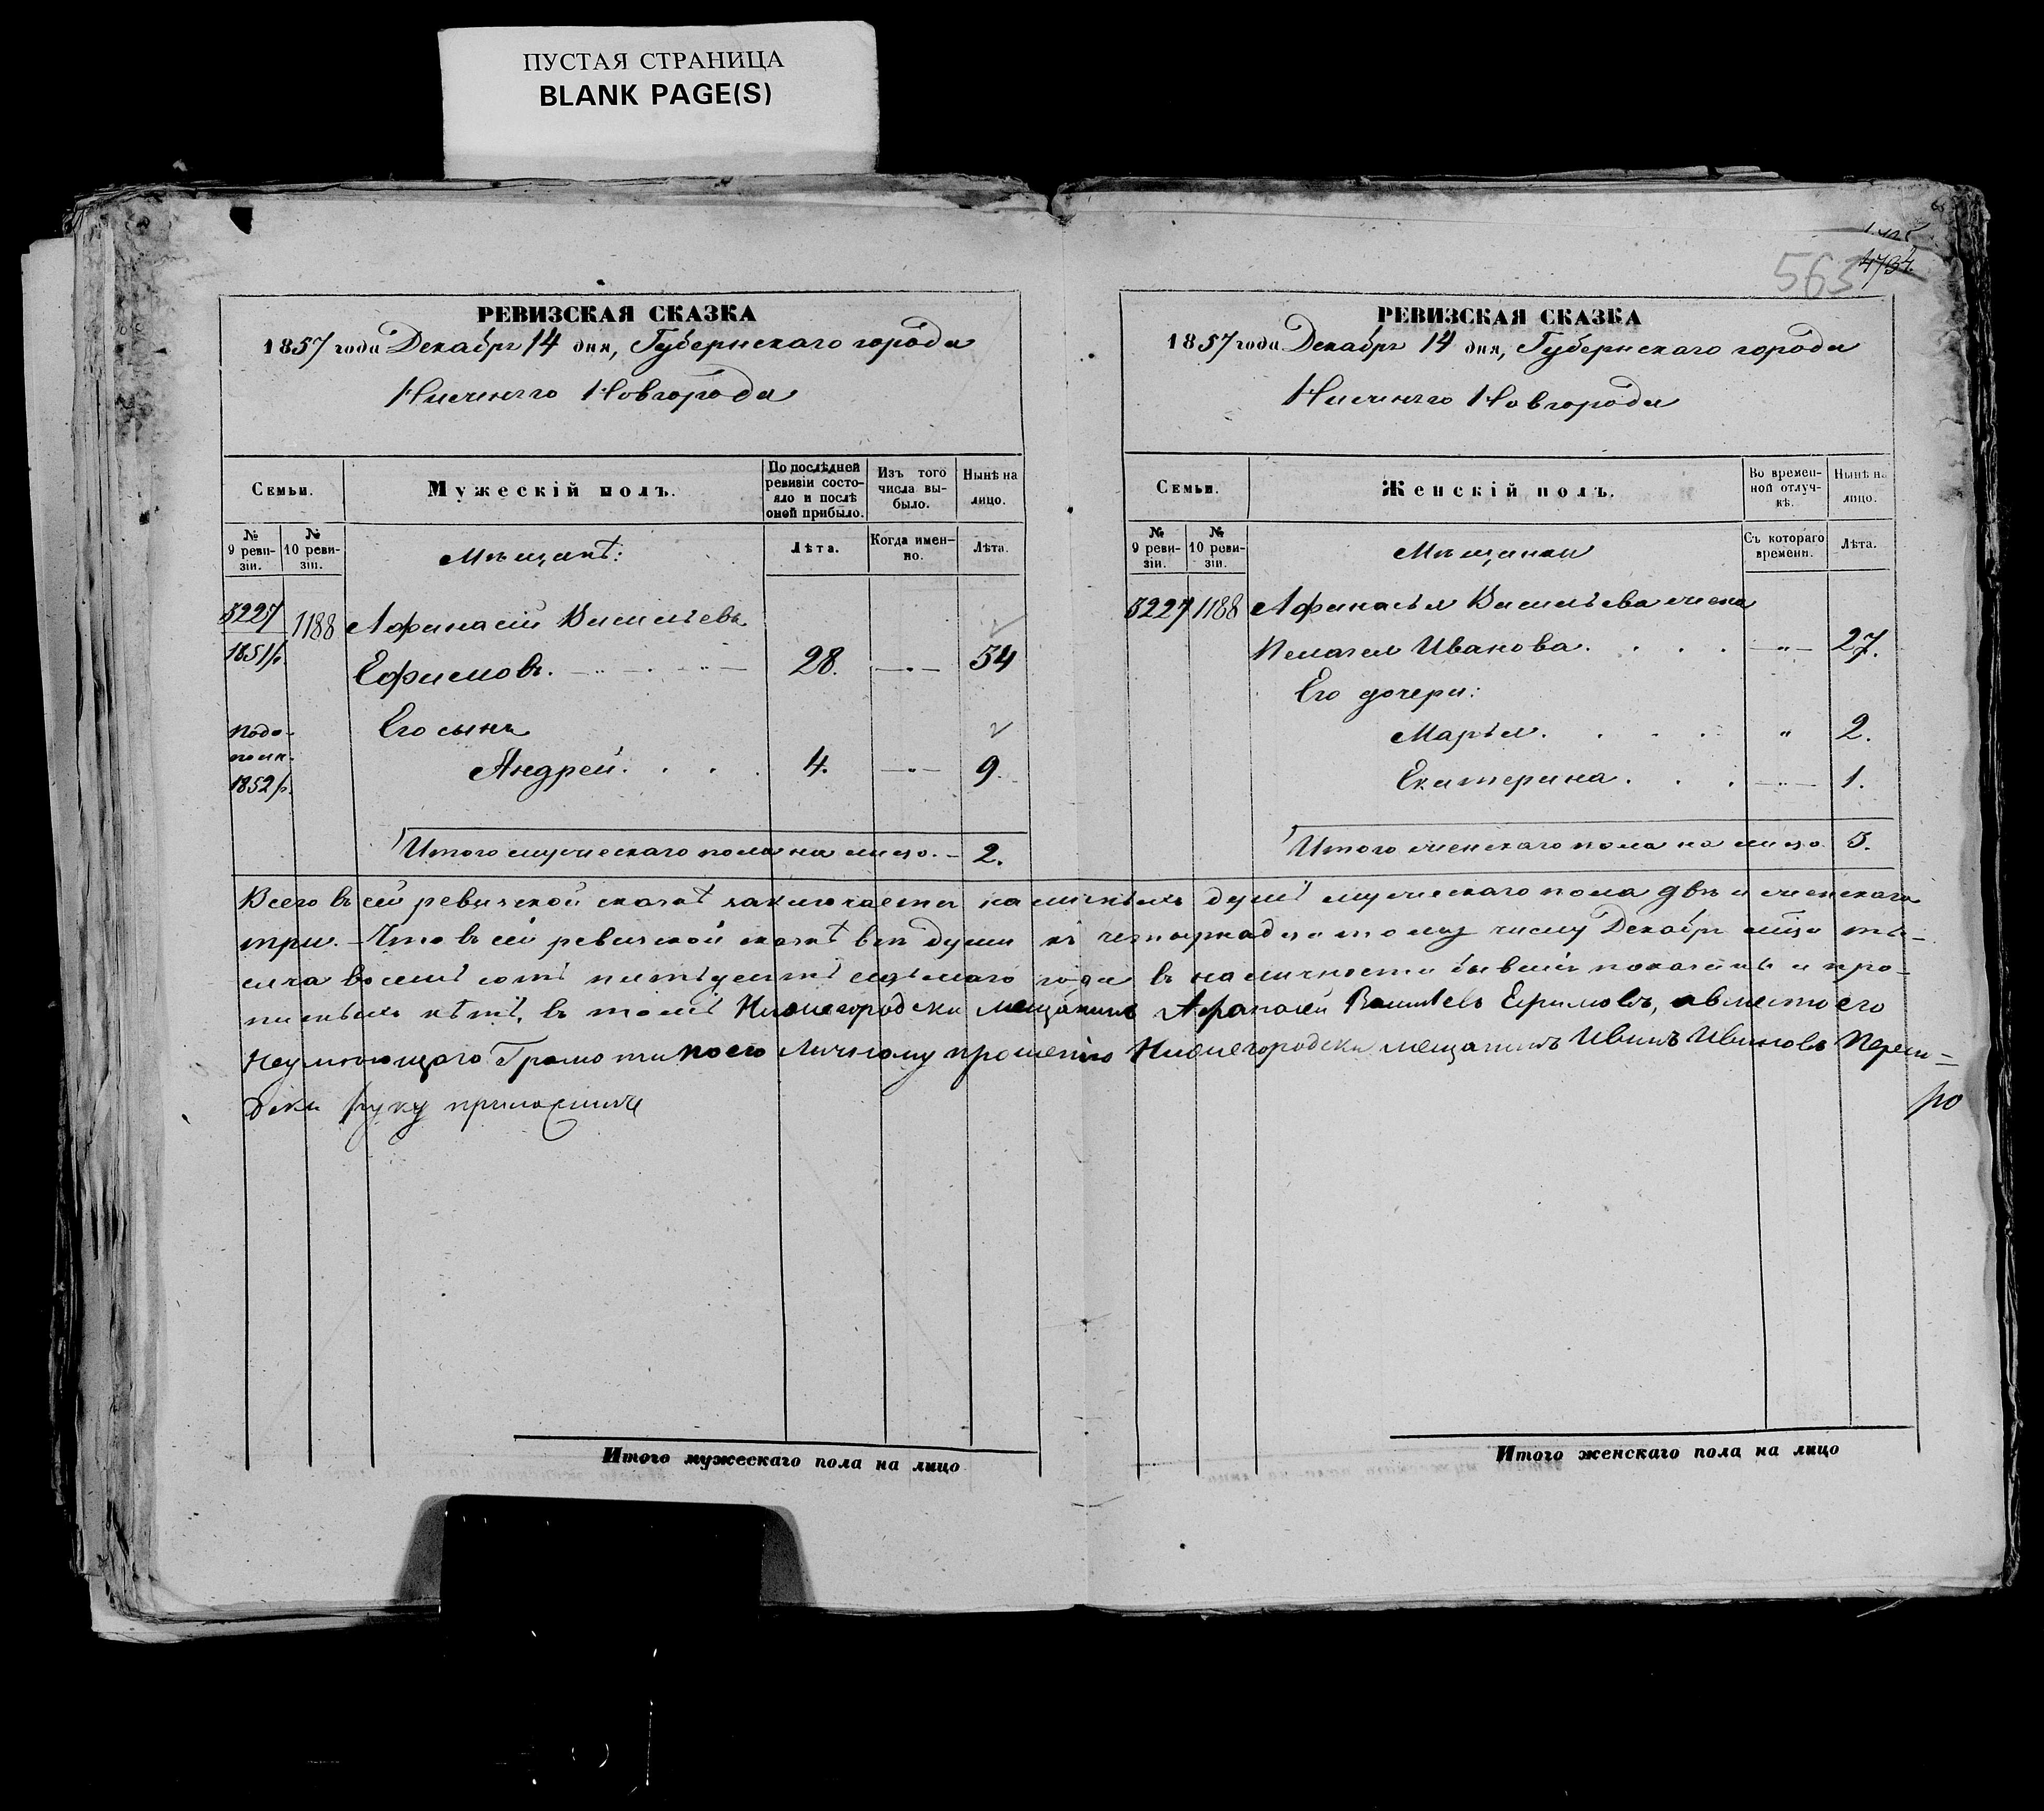 ПУСТАЯ СТРАНИЦА
BLANK PAGE(S)
563
4734.
РЕВИЗСКАЯ СКАЗКА
1857 года Декабря 14 дня, Губернскаго города
Нижняго Новгорода
Семьи.
Мужескій полъ.
По послѣдней ревизіи состояло и послѣ оной прибыло.
Изъ того числа выбыло.
Нынѣ на лицо.
№ 9 ревизіи.
№ 10 ревизіи.
Мѣщане:
Лѣта.
Когда именно.
Лѣта.
3227 1188 Афанасій Васильевъ
1851/р. Ефимовъ. 28. —„— 34
Его сынъ
1852/р. Андрей. . . . 4. —„— 9.
Итого мужескаго пола на лицо. — 2.
РЕВИЗСКАЯ СКАЗКА
1857 года Декабря 14 дня, Губернскаго города
Нижняго Новгорода
Семьи.
Женскій полъ.
Во временной отлучкѣ.
Нынѣ на лицо.
№ 9 ревизіи.
№ 10 ревизіи.
Мѣщанки
Съ котораго времени.
Лѣта.
3227 1188 Афанасья Васильева жена
Пелагея Иванова. . . . —„— 27.
Его дочери:
Марья. . . . . „ 2.
Екатерина. . . . —„— 1.
Итого женскаго пола на лицо. 3.
Всего въ сей ревизской сказкѣ заключается наличныхъ душъ мужескаго пола двѣ и женскаго
три. — Что въ сей ревизской сказкѣ всѣ души къ четырнадцатому числу Декабря мѣсяца ты-
сяча восемь сотъ пятьдесятъ седьмаго года въ наличности бывшія показаны и про-
писныхъ нѣтъ, въ томъ Нижегородски мещанинъ Афанасей Васильевъ Ефимовъ, а вместо его
Неумеющаго Грамоти по его Личному прошению Нижегородски мещанинъ Иванъ Ивановъ
руку приложилъ
Итого мужескаго пола на лицо
Итого женскаго пола на лицо